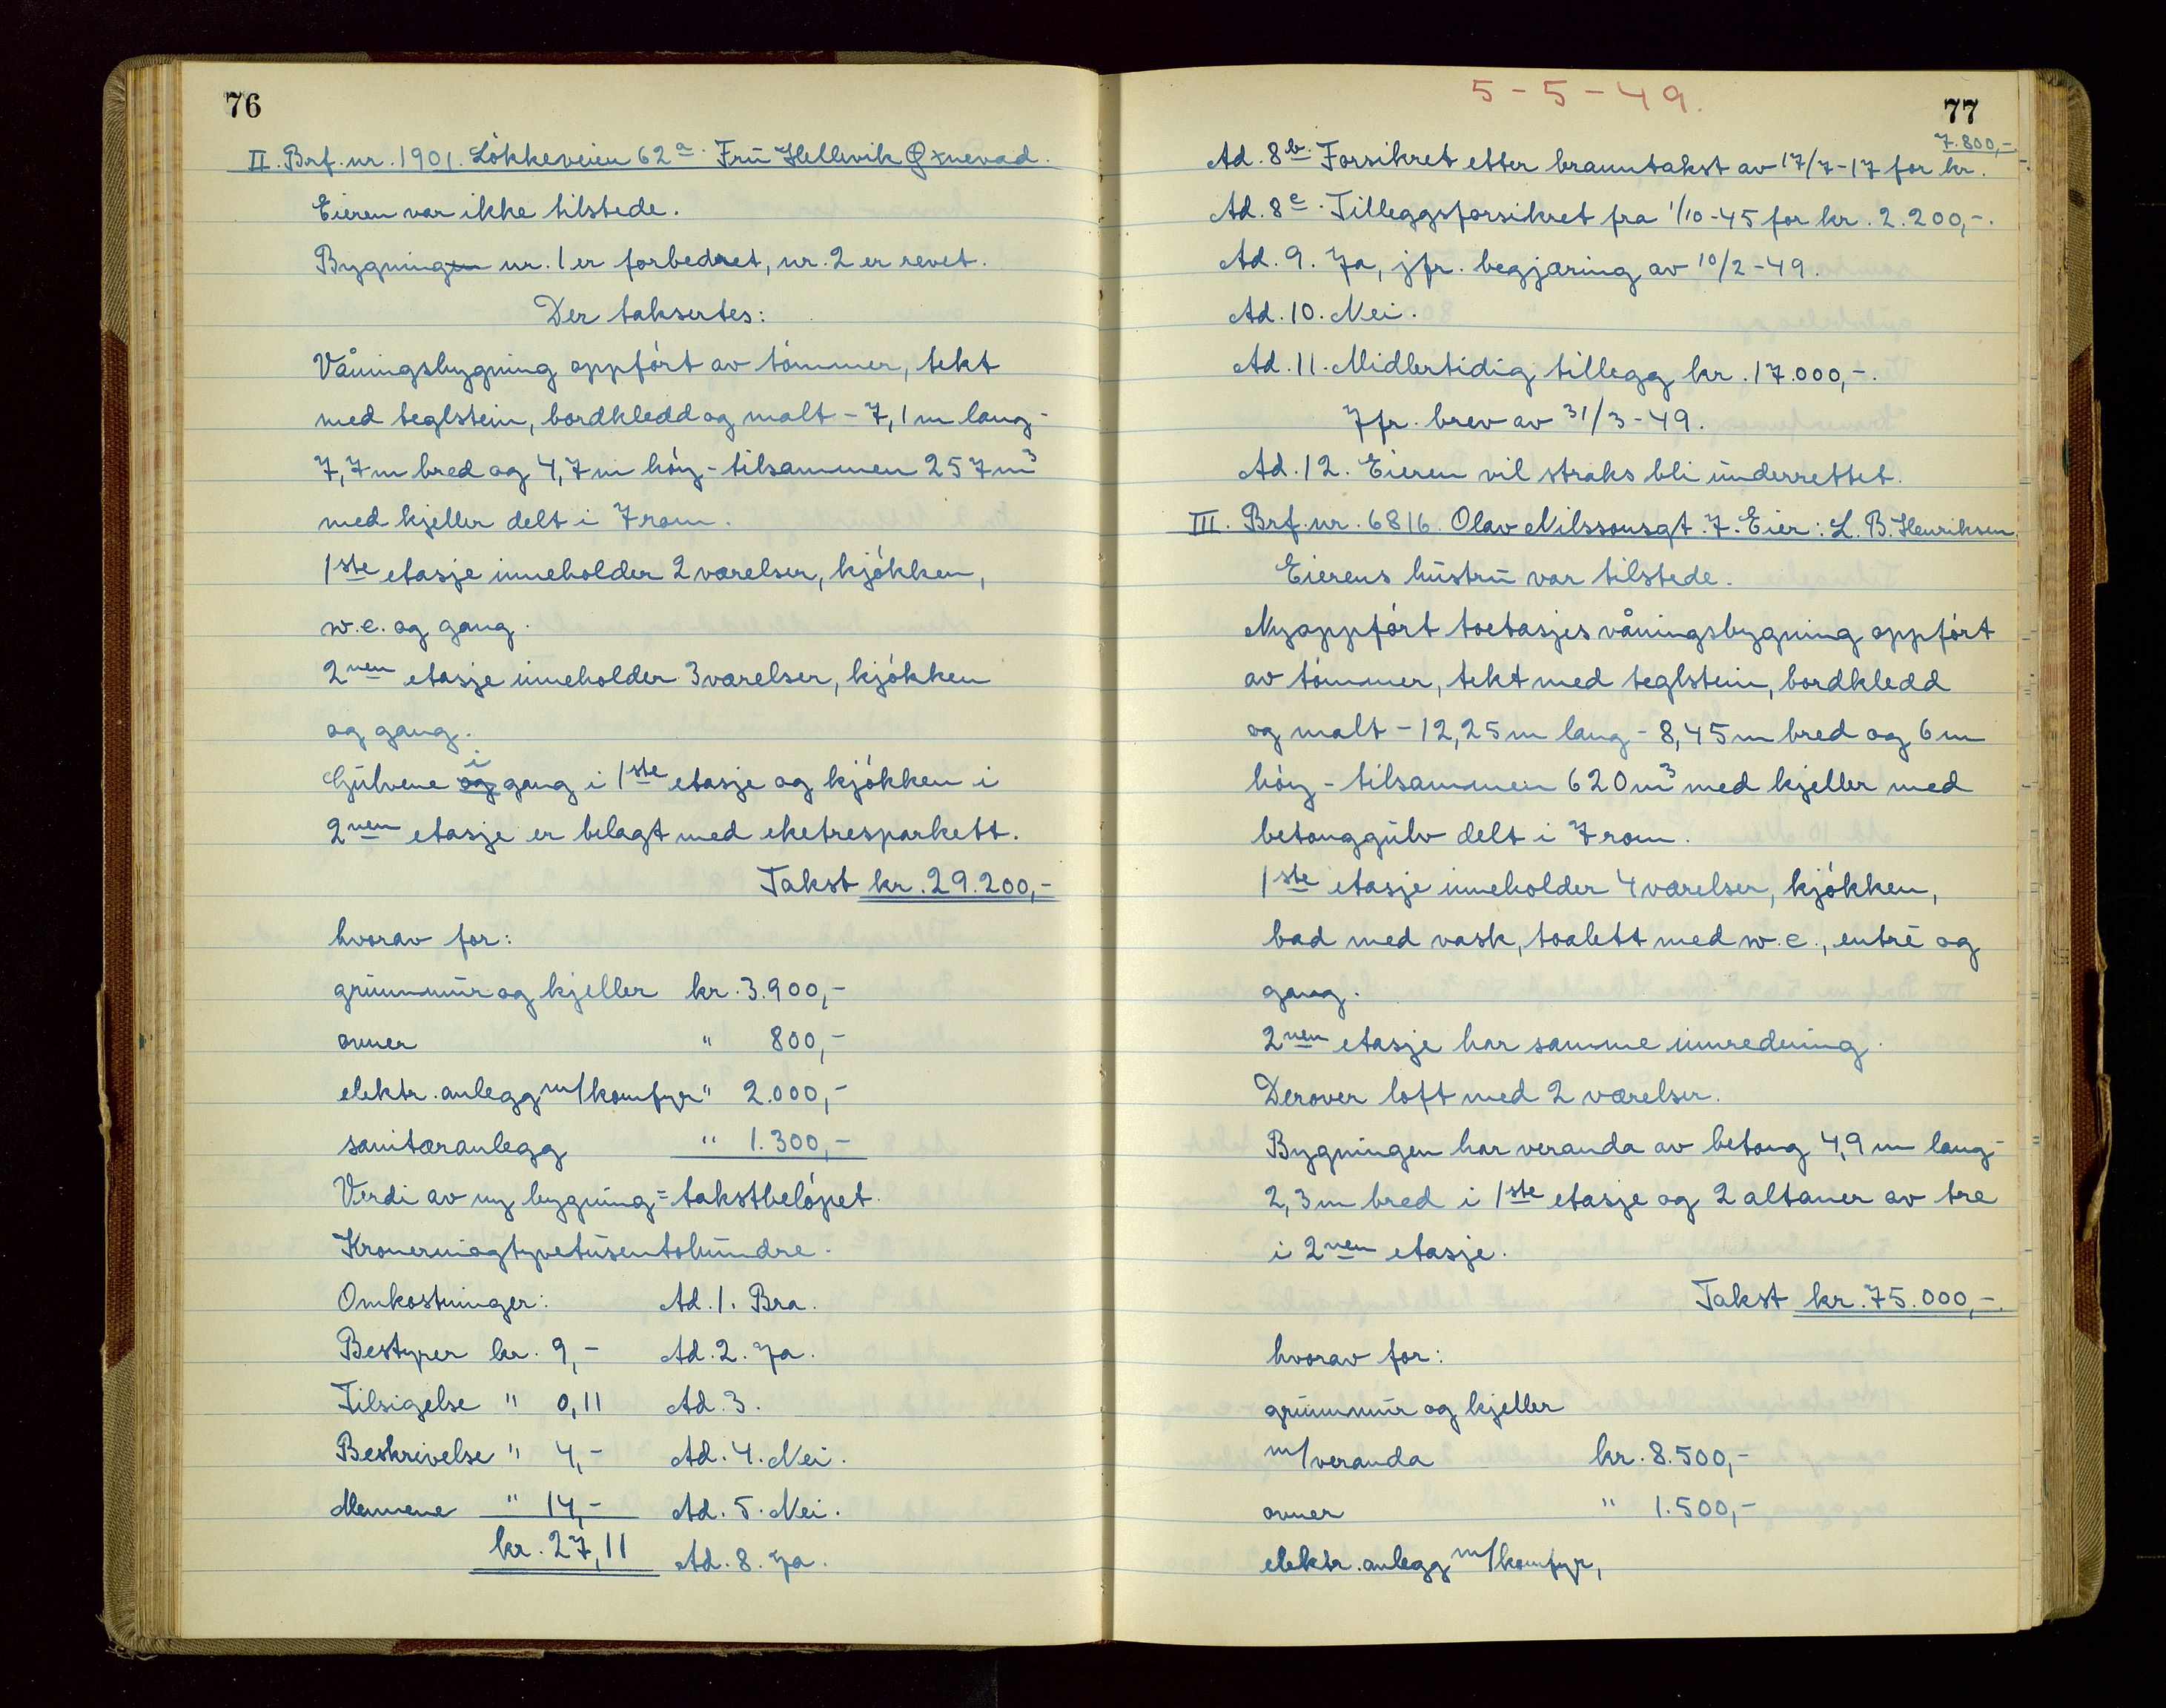 76
II. Brf. nr. 1901. Løkkeveien 62a. Fru Hellevik Øxnevad.
Eieren var ikke tilstede.
Bygningen nr. 1 er forbedret, nr. 2 er revet.
Der taksertes:
Våningsbygning oppført av tømmer, tekt
med teglstein, bordkledd og malt – 7,1 m lang –
7,7 m bred og 4,7 m høy – tilsammen 257 m³
med kjeller delt i 7 rom.
1ste etasje inneholder 2 værelser, kjøkken,
w.c. og gang.
2nen etasje inneholder 3 værelser, kjøkken
og gang.
Gulvene og i gang i 1ste etasje og kjøkken i
2nen etasje er belagt med eketresparkett.
Takst kr. 29.200,–
hvorav for:
grunnmur og kjeller kr. 3.900,–
ovner " 800,–
elektr. anlegg m/komfyr " 2.000,–
sanitæranlegg " 1.300,–
Verdi av ny bygning = takstbeløpet.
Kronerniogtyvetusentohundre.
Omkostninger: Ad. 1. Bra.
Bestyrer kr. 9,– Ad. 2. Ja.
Tilsigelse " 0,11 Ad. 3.
Beskrivelse " 4,– Ad. 4. Nei.
Mennene " 14,– Ad. 5. Nei.
kr. 27,11 Ad. 8. Ja.
5-5-49.
77
7.800,–
Ad. 8b. Forsikret etter branntakst av 17/7-17 for kr.
Ad. 8c. Tilleggsforsikret fra 1/10-45 for kr. 2.200,–.
Ad. 9. Ja, jfr. begjæring av 10/2-49.
Ad. 10. Nei.
Ad. 11. Midlertidig tillegg kr. 17.000,–.
Jfr. brev av 31/3-49.
Ad. 12. Eieren vil straks bli underrettet.
III. Brf. nr. 6816. Olav Nilssonsgt. 7. Eier: L. B. Henriksen.
Eierens hustru var tilstede.
Nyoppført toetasjes våningsbygning oppført
av tømmer, tekt med teglstein, bordkledd
og malt – 12,25 m lang – 8,45 m bred og 6 m
høy – tilsammen 620 m³ med kjeller med
betonggulv delt i 7 rom.
1ste etasje inneholder 4 værelser, kjøkken,
bad med vask, toalett med w.c., entré og
gang.
2nen etasje har samme innredning.
Derover loft med 2 værelser.
Bygningen har veranda av betong 4,9 m lang –
2,3 m bred i 1ste etasje og 2 altaner av tre
i 2nen etasje.
Takst kr. 75.000,–.
hvorav for:
grunnmur og kjeller
m/veranda kr. 8.500,–
ovner " 1.500,–
elektr. anlegg m/komfyr,